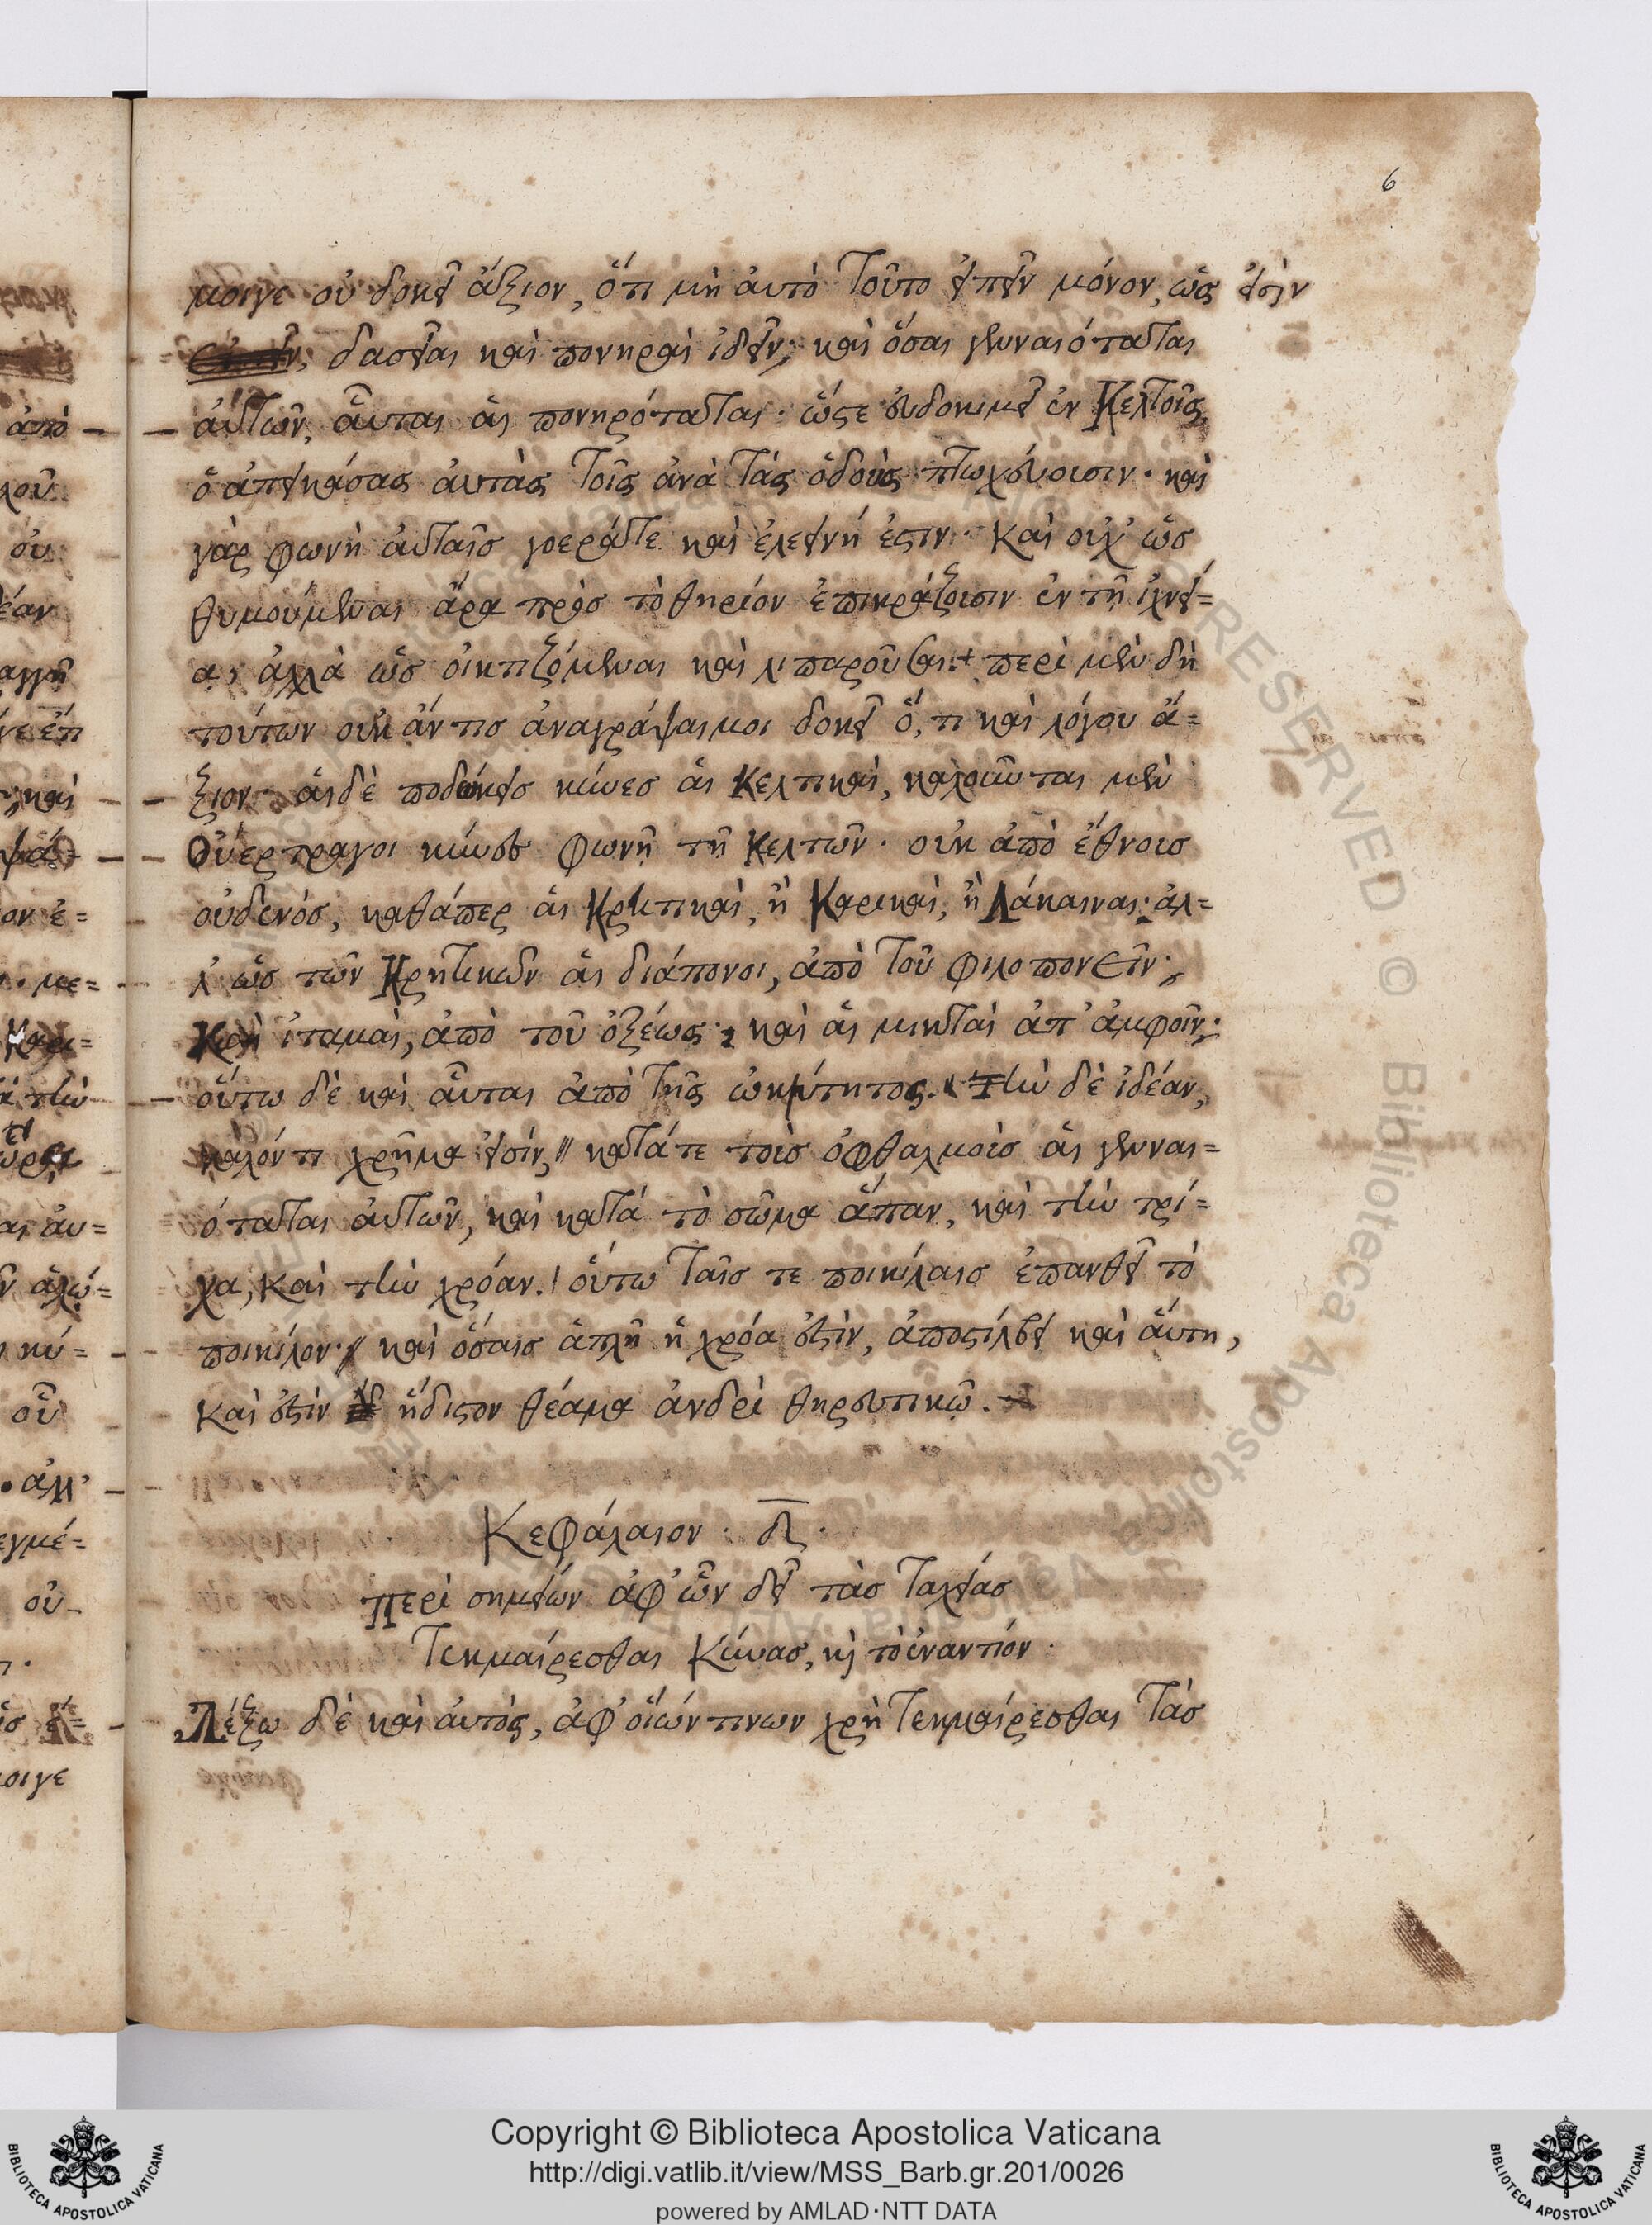 6
μοιγε οὐ δοκεῖ ἄξιον, ὅτι μὴ ἀυτὸ τοῦτο εἰπεῖν μόνον, ὡς εἰσὶν
δασεῖαι καὶ πονηραὶ ἰδεῖν; καὶ ὅσαι γενναιόταται
ἀυτῶν, ἇυται ἁι πονηρόταται· ὥστε ἐυδοκιμεῖ ἐν Κελτοῖς,
ὁ ἀπεικάσας ἀυτὰς τοῖς ἀνὰ τὰς ὁδοὺς πτωχέυουσιν· καὶ
γὰρ φωνὴ ἀυταῖς γοεράτε καὶ ἐλεεινή ἐστιν· καὶ οὐχ' ὡς
θυμούμεναι ἄρα πρὸς τὸ θηρίον ἐπικράζουσιν ἐν τῇ ἰχνεί=
α, ἀλλὰ ὡς οἰκτιζόμεναι καὶ λιπαροῦσαι. + περὶ μὲν δὴ
τούτων οὐκ ἄν τις ἀναγράψαι μοι δοκεῖ ὅ, τι καὶ λόγου ἄ=
ξιον· ἁι δὲ ποδώκεις κύνες ἁι Κελτικαὶ, καλοῦνται μὲν
Οὐέρτραγοι κύνες φωνῇ τῇ Κελτῶν· οὐκ ἀπὸ ἔθνους
οὐδενός, καθάπερ ἁι Κρητικαὶ, ἢ Καρικαὶ, ἢ Λάκαιναι· ἀλ=
λ' ὡς τῶν Κρητικῶν ἁι διάπονοι, ἀπὸ τοῦ φιλοπονεῖν·,
Καὶ ἰταμαὶ, ἀπὸ τοῦ ὀξέως·, καὶ ἁι μικταὶ ἀπ' ἀμφοῖν·
οὕτω δὲ καὶ ἇυται ἀπὸ τῆς ὠκύτητος. τὴν δὲ ἰδέαν,
καλόν τι χρῆμα εἰσίν, // κατάτε τοὺς ὀφθαλμοὺς ἁι γενναι=
όταται ἀυτῶν, καὶ κατά τὸ σῶμα ἅπαν, καὶ τὴν τρί=
χα, καὶ τὴν χρόαν. ! οὕτω ταῖς τε ποικίλαις ἐπανθεῖ τὸ
ποικίλον· // καὶ ὅσαις ἁπλῆ ἡ χρόα ἐστὶν, ἀποστίλβει καὶ ἅυτη,
καὶ ἐστὶν ἥδιστον θέαμα ἀνδρὶ θηρευτικῷ.
Κεφάλαιον · δ ·
Περὶ σημείων ἀφ' ὧν δεῖ τὰς ταχείας
τεκμαίρεσθαι Κύνας, κὶ τὸ ἐναντίον ·
Λέξω δὲ καὶ ἀυτὸς, ἀφ' οἵων τινων χρὴ τεκμαίρεσθαι τὰς
Copyright © Biblioteca Apostolica Vaticana
http://digi.vatlib.it/view/MSS_Barb.gr.201/0026
powered by AMLAD·NTT DATA